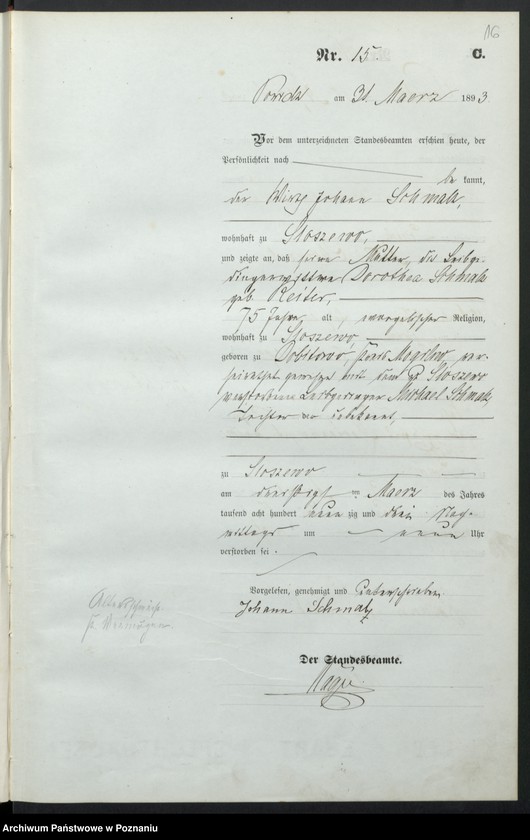 16
Nr. 15 C.
Powidz am 31. Maerz 1893.
Vor dem unterzeichneten Standesbeamten erschien heute, der
Persönlichkeit nach
be kannt,
der Wirth Johann Schmalz,
wohnhaft zu Sloszewo,
und zeigte an, daß seine Mutter, die Leibge-
dingerwittwe Dorothea Schmalz
geb. Reiter,
75 Jahre alt, evangelischer Religion,
wohnhaft zu Sloszewo,
geboren zu Kreis Mogilno, ver-
heirathet gewesen mit dem zu Sloszewo
verstorbenen Leibgedinger Michael Schmalz,
Tochter von
zu Sloszewo
am Maerz des Jahres
tausend acht hundert neun zig und drei Nach-
mittags um neun Uhr
verstorben sei.
Vorgelesen, genehmigt und unterschrieben
Johann Schmalz
Altersschwäche
Der Standesbeamte.
Archiwum Państwowe w Poznaniu